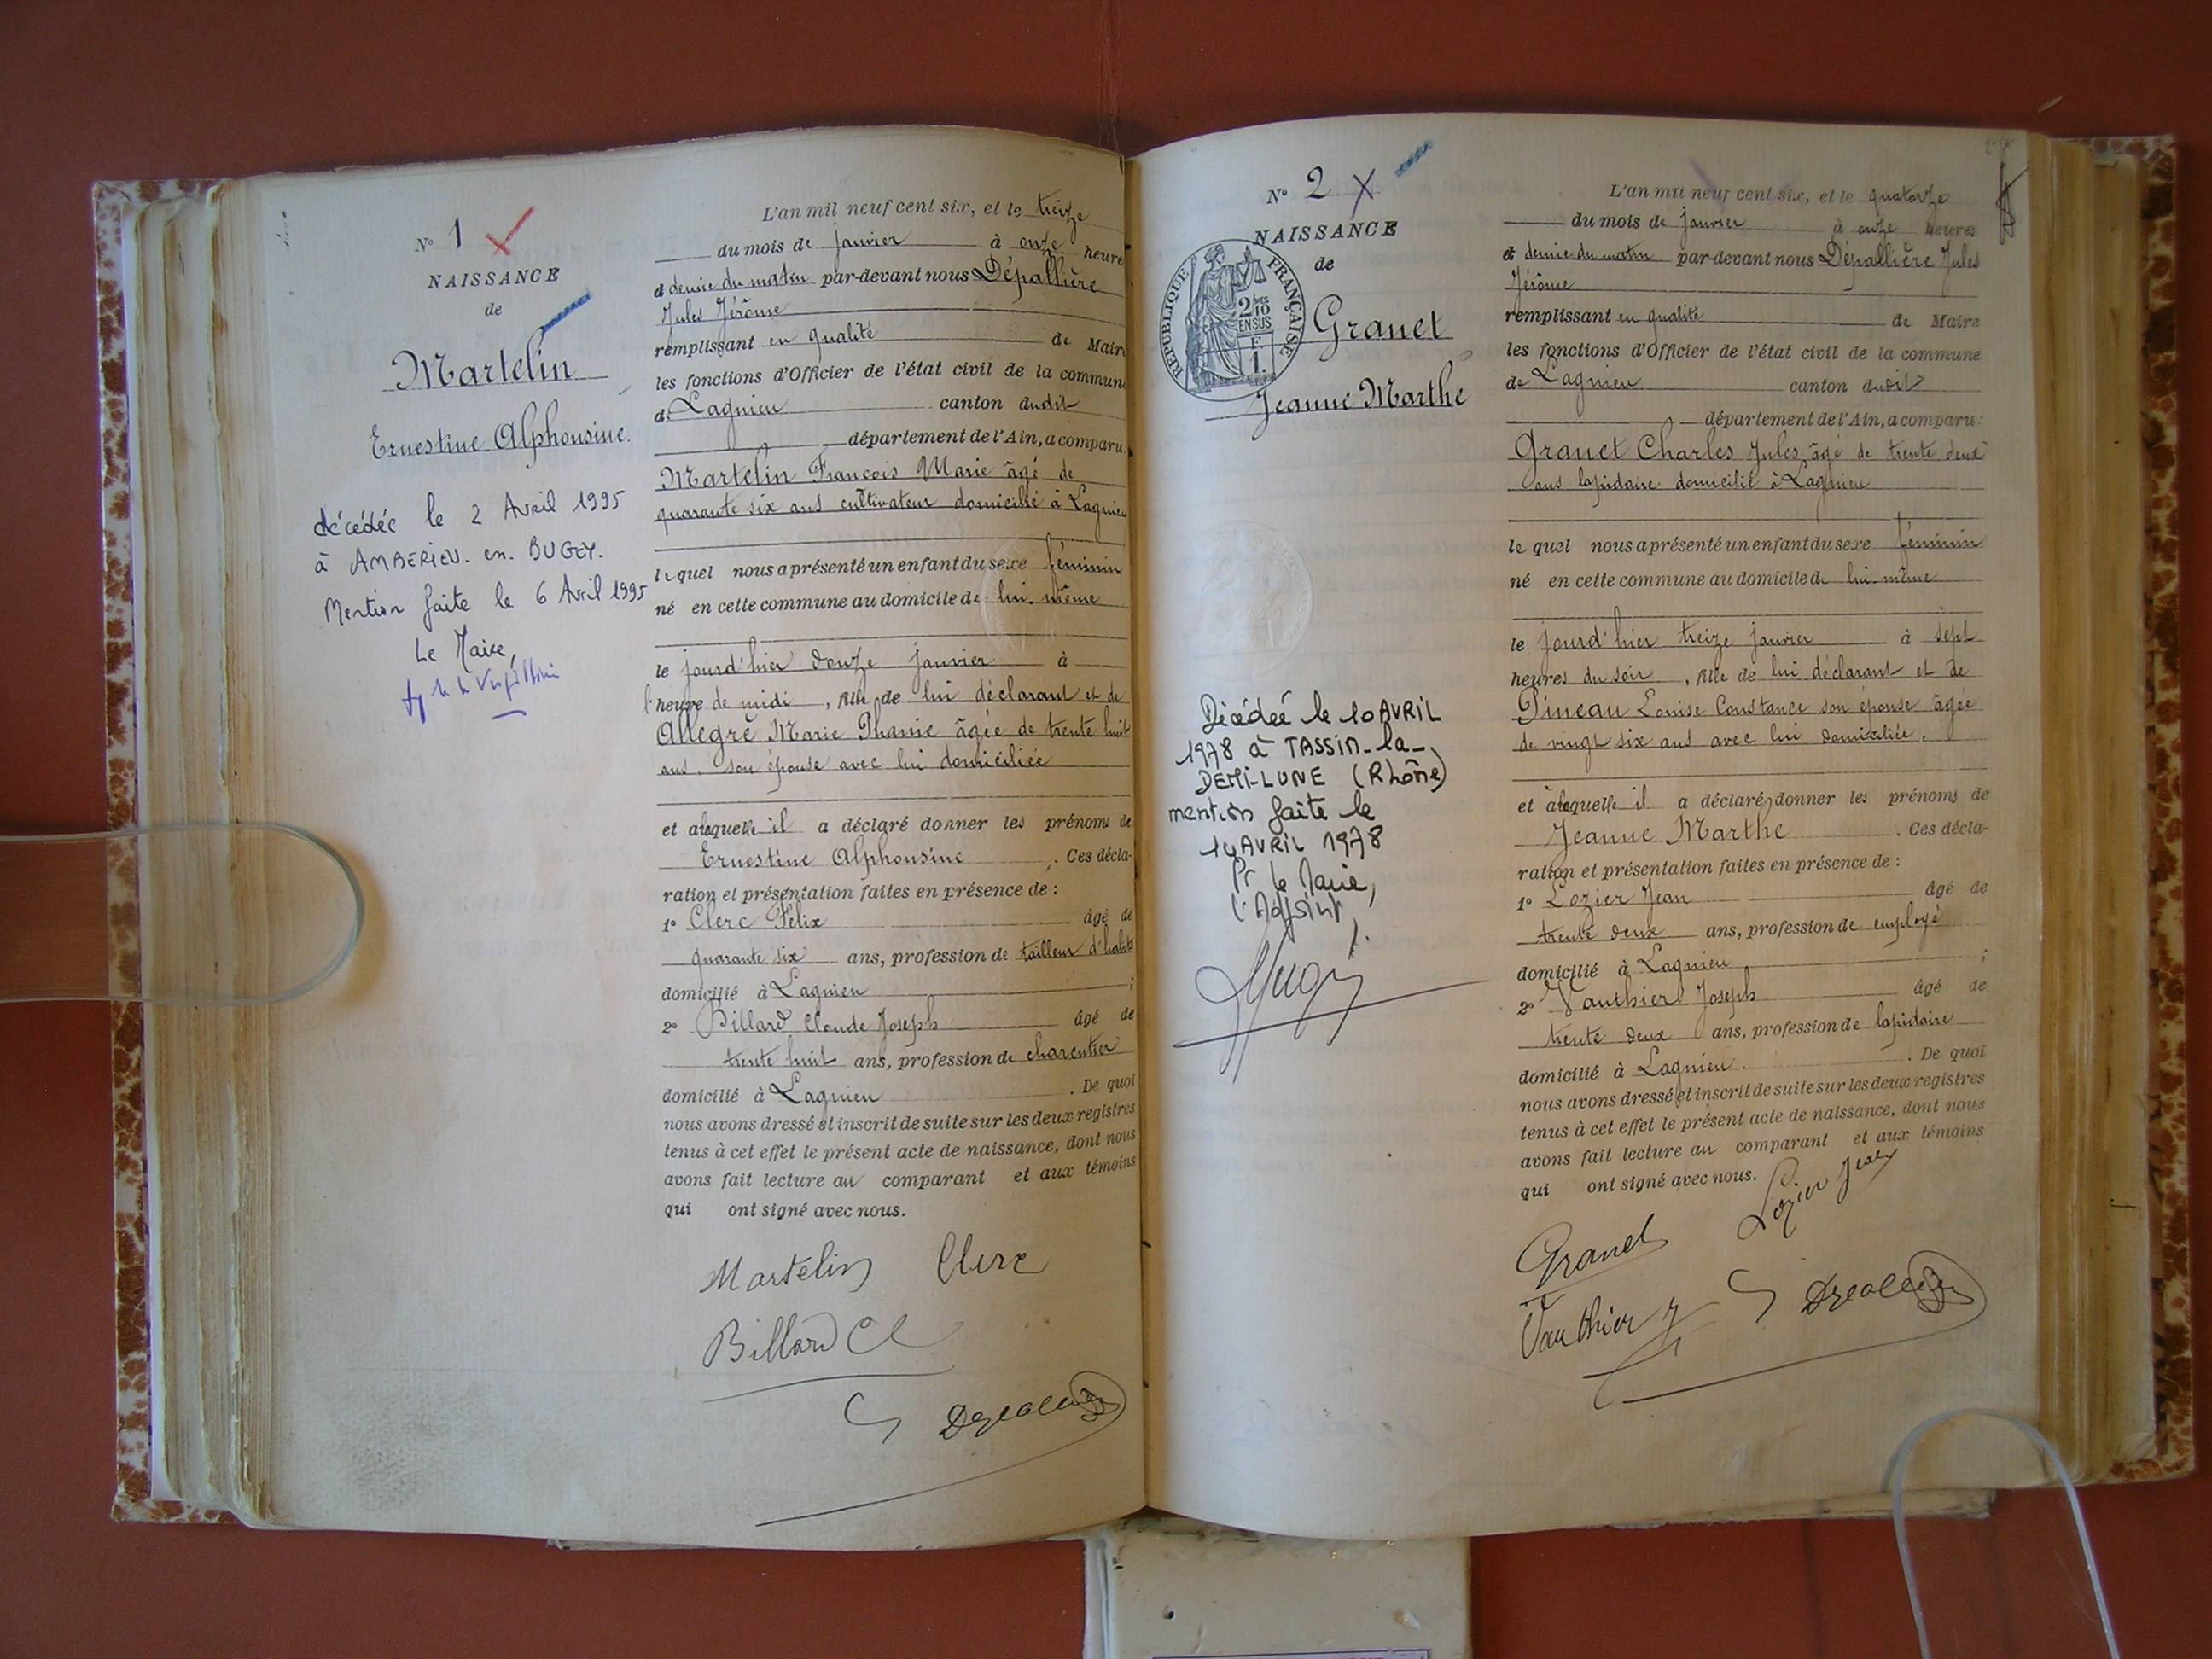 N° 1
NAISSANCE
de
Martelin
Ernestine Alphonsine.
décédée le 2 Avril 1995
à AMBERIEU. en. BUGEY.
Mention faite le 6 Avril 1995
Le Maire,
L'an mil neuf cent six, et le treize
du mois de janvier à onze heure
et demie du matin par-devant nous Dépallière
Jules Jérôme
remplissant en qualité de Maire
les fonctions d'Officier de l'état civil de la commune
de Lagnieu canton dudit
département de l'Ain, a comparu
Martelin François Marie âgé de
quarante six ans cultivateur domicilié à Lagnieu
lequel nous a présenté un enfant du sexe féminin
né en cette commune au domicile de lui-même
le jourd'hier douze janvier à
l'heure de midi, fille de lui déclarant et de
Allegre Marie Phanie âgée de trente huit
ans. son épouse avec lui domiciliée
et à laquelle il a déclaré donner les prénoms de
Ernestine Alphonsine. Ces décla-
ration et présentation faites en présence de :
1° Clerc Félix âgé de
quarante six ans, profession de tailleur d'habits
domicilié à Lagnieu ;
2° Billard Claude Joseph âgé de
trente huit ans, profession de charcutier
domicilié à Lagnieu. De quoi
nous avons dressé et inscrit de suite sur les deux registres
tenus à cet effet le présent acte de naissance, dont nous
avons fait lecture au comparant et aux témoins
qui ont signé avec nous.
Martelin Clerc
Billard Cl
N° 2
NAISSANCE
de
RÉPUBLIQUE FRANÇAISE
2/10 EN SUS
F
1.
Granet
Jeanne Marthe
Décédée le 10 AVRIL
1978 à TASSIN-la-
DEMI-LUNE (Rhône)
mention faite le
14 AVRIL 1978
Pr le Maire,
l'Adjoint,
L'an mil neuf cent six, et le quatorze
du mois de janvier à onze heures
et demie du matin par-devant nous Dépallière Jules
Jérôme
remplissant en qualité de Maire
les fonctions d'Officier de l'état civil de la commune
de Lagnieu canton dudit
département de l'Ain, a comparu :
Granet Charles Jules âgé de trente deux
ans lapidaire domicilié à Lagnieu
lequel nous a présenté un enfant du sexe féminin
né en cette commune au domicile de lui-même
le jourd'hier treize janvier à sept
heures du soir, fille de lui déclarant et de
Pineau Louise Constance son épouse âgée
de vingt six ans avec lui domiciliée.
et à laquelle il a déclaré donner les prénoms de
Jeanne Marthe. Ces décla-
ration et présentation faites en présence de :
1° Lozier Jean âgé de
trente deux ans, profession de employé
domicilié à Lagnieu ;
2° Vauthier Joseph âgé de
trente deux ans, profession de lapidaire
domicilié à Lagnieu. De quoi
nous avons dressé et inscrit de suite sur les deux registres
tenus à cet effet le présent acte de naissance, dont nous
avons fait lecture au comparant et aux témoins
qui ont signé avec nous. Lozier Jean
Granet
Vauthier J